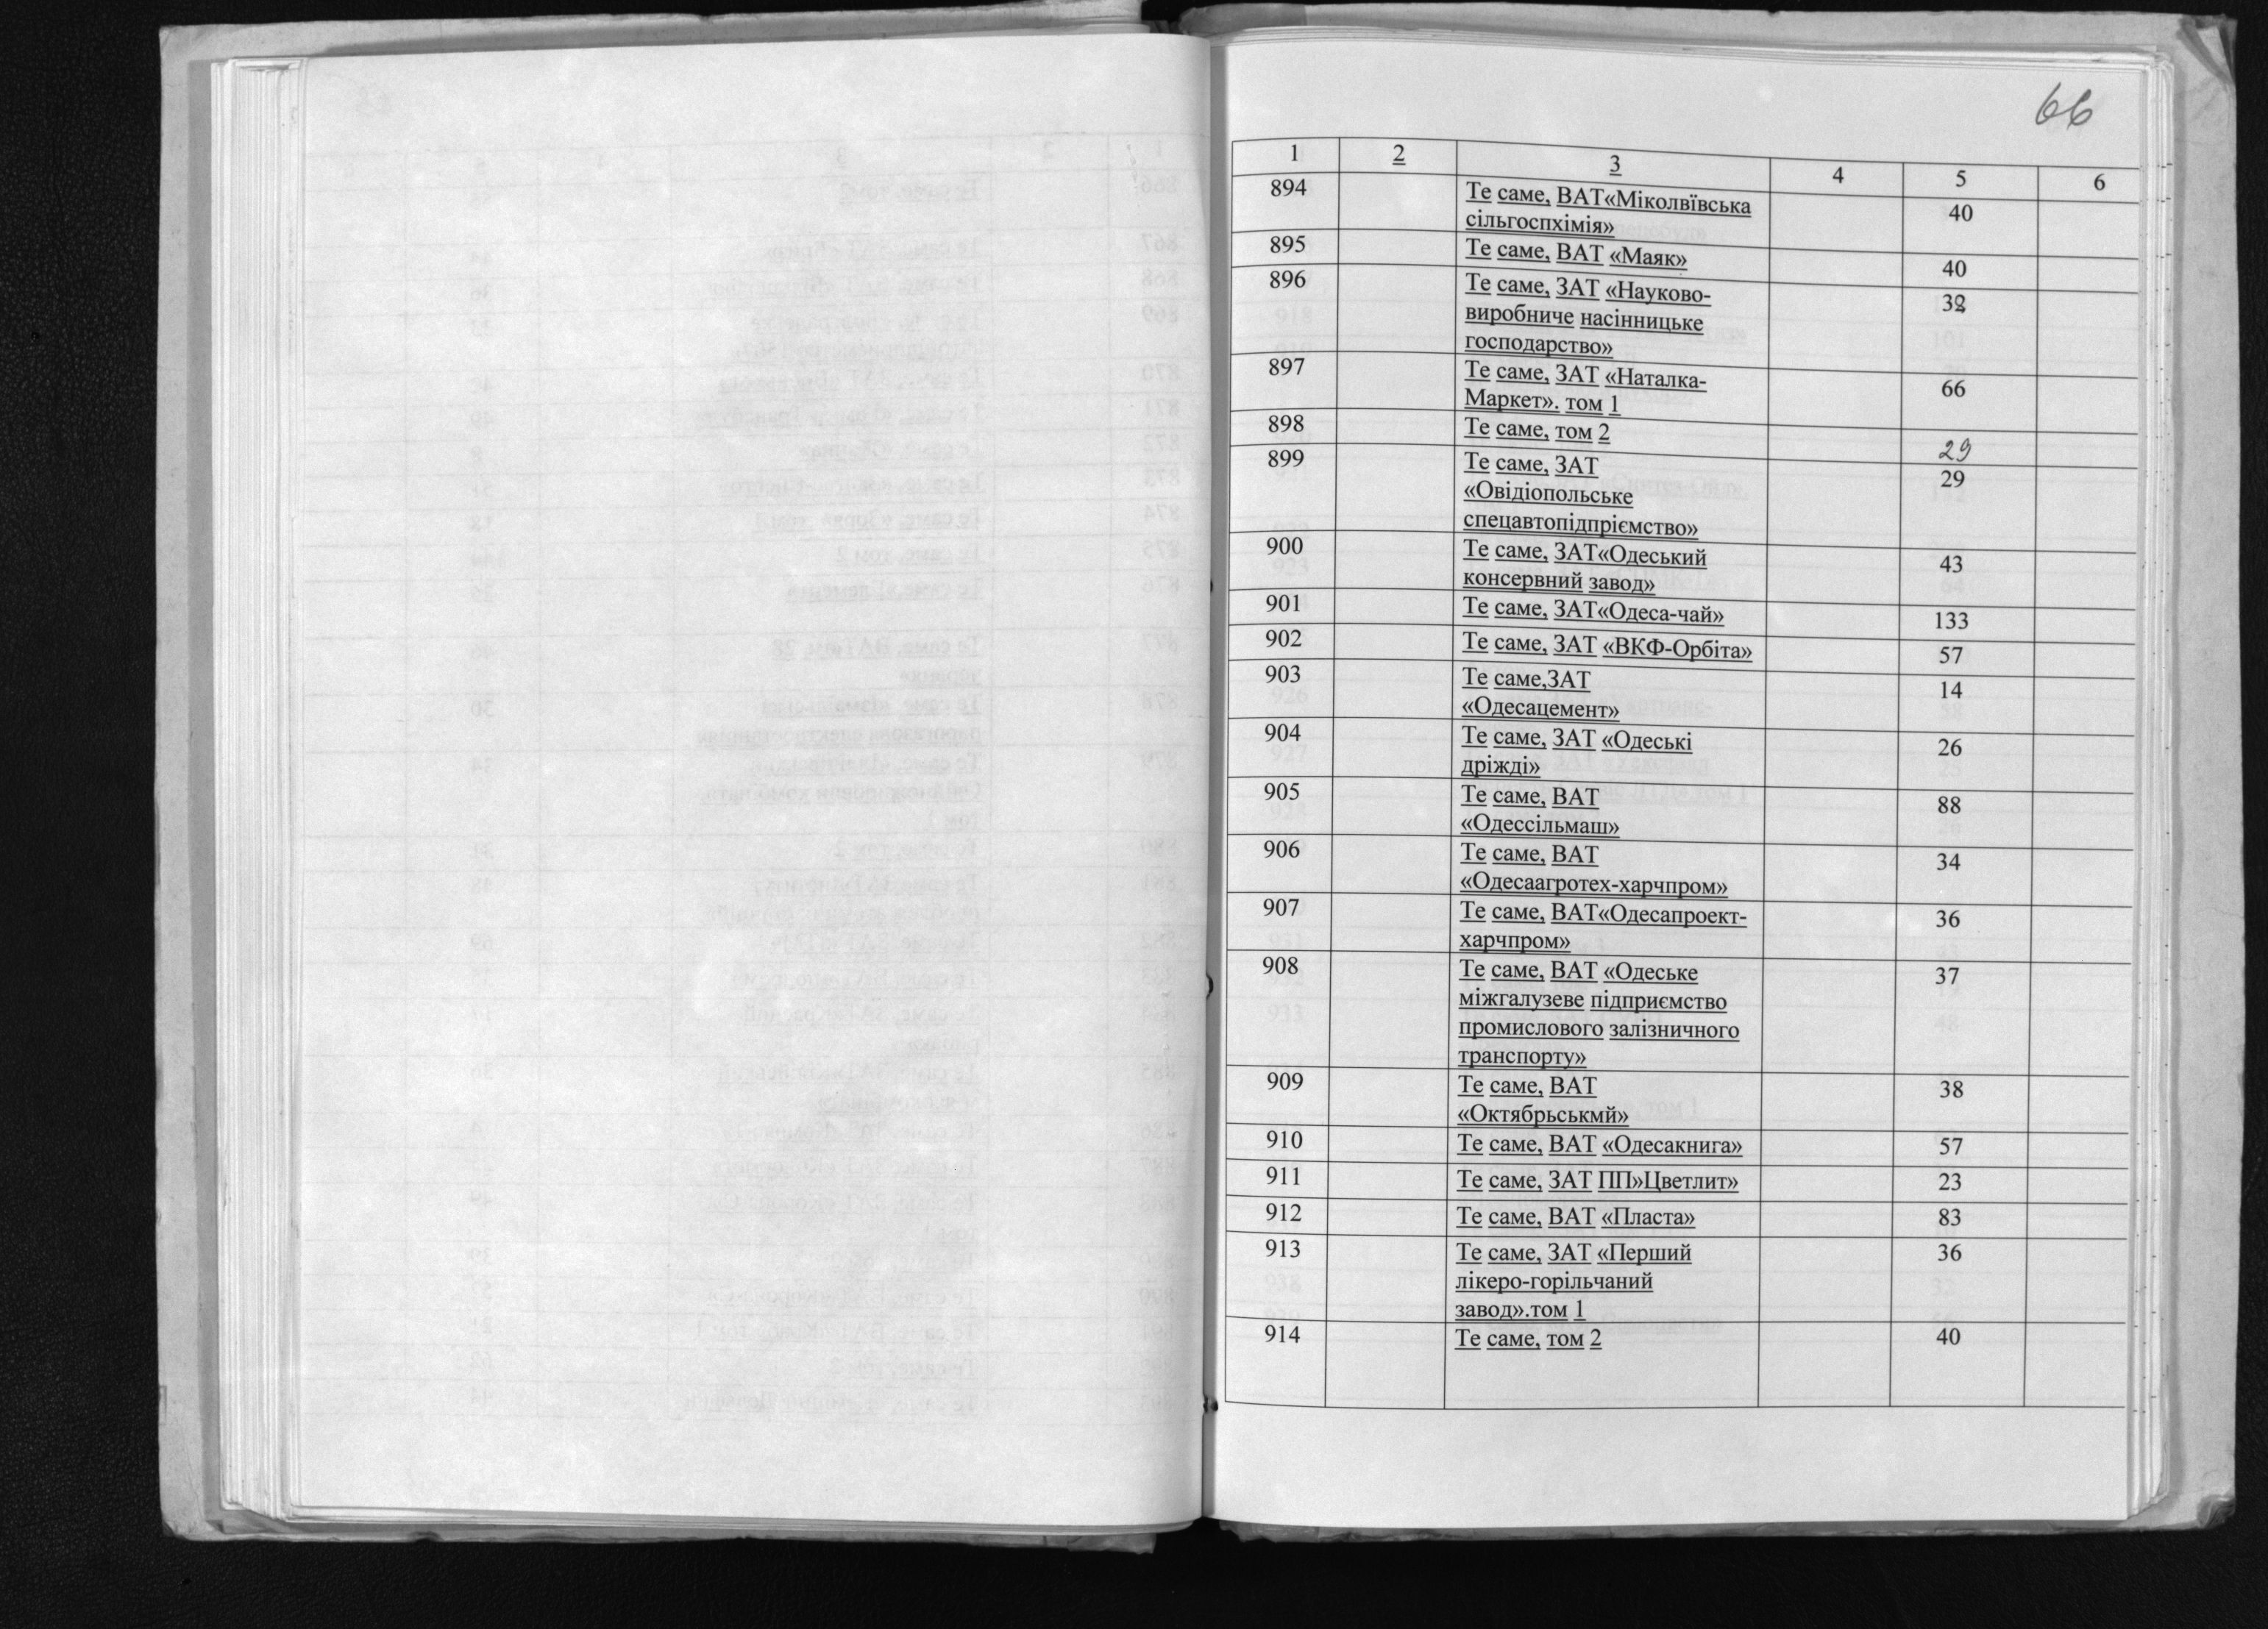 66
1 2 3 4 5 6
894 Те саме, ВАТ«Міколвївська 40
сільгоспхімія»
895 Те саме, ВАТ «Маяк» 40
896 Те саме, ЗАТ «Науково- 39
виробниче насінницьке
господарство»
897 Те саме, ЗАТ «Наталка- 66
Маркет». том 1
898 Те саме, том 2 29
899 Те саме, ЗАТ 29
«Овідіопольське
спецавтопідпріємство»
900 Те саме, ЗАТ«Одеський 43
консервний завод»
901 Те саме, ЗАТ«Одеса-чай» 133
902 Те саме, ЗАТ «ВКФ-Орбіта» 57
903 Те саме,ЗАТ 14
«Одесацемент»
904 Те саме, ЗАТ «Одеські 26
дріжді»
905 Те саме, ВАТ 88
«Одессільмаш»
906 Те саме, ВАТ 34
«Одесаагротех-харчпром»
907 Те саме, ВАТ«Одесапроект- 36
харчпром»
908 Те саме, ВАТ «Одеське 37
міжгалузеве підприємство
промислового залізничного
транспорту»
909 Те саме, ВАТ 38
«Октябрьськмй»
910 Те саме, ВАТ «Одесакнига» 57
911 Те саме, ЗАТ ПП»Цветлит» 23
912 Те саме, ВАТ «Пласта» 83
913 Те саме, ЗАТ «Перший 36
лікеро-горільчаний
завод».том 1
914 Те саме, том 2 40